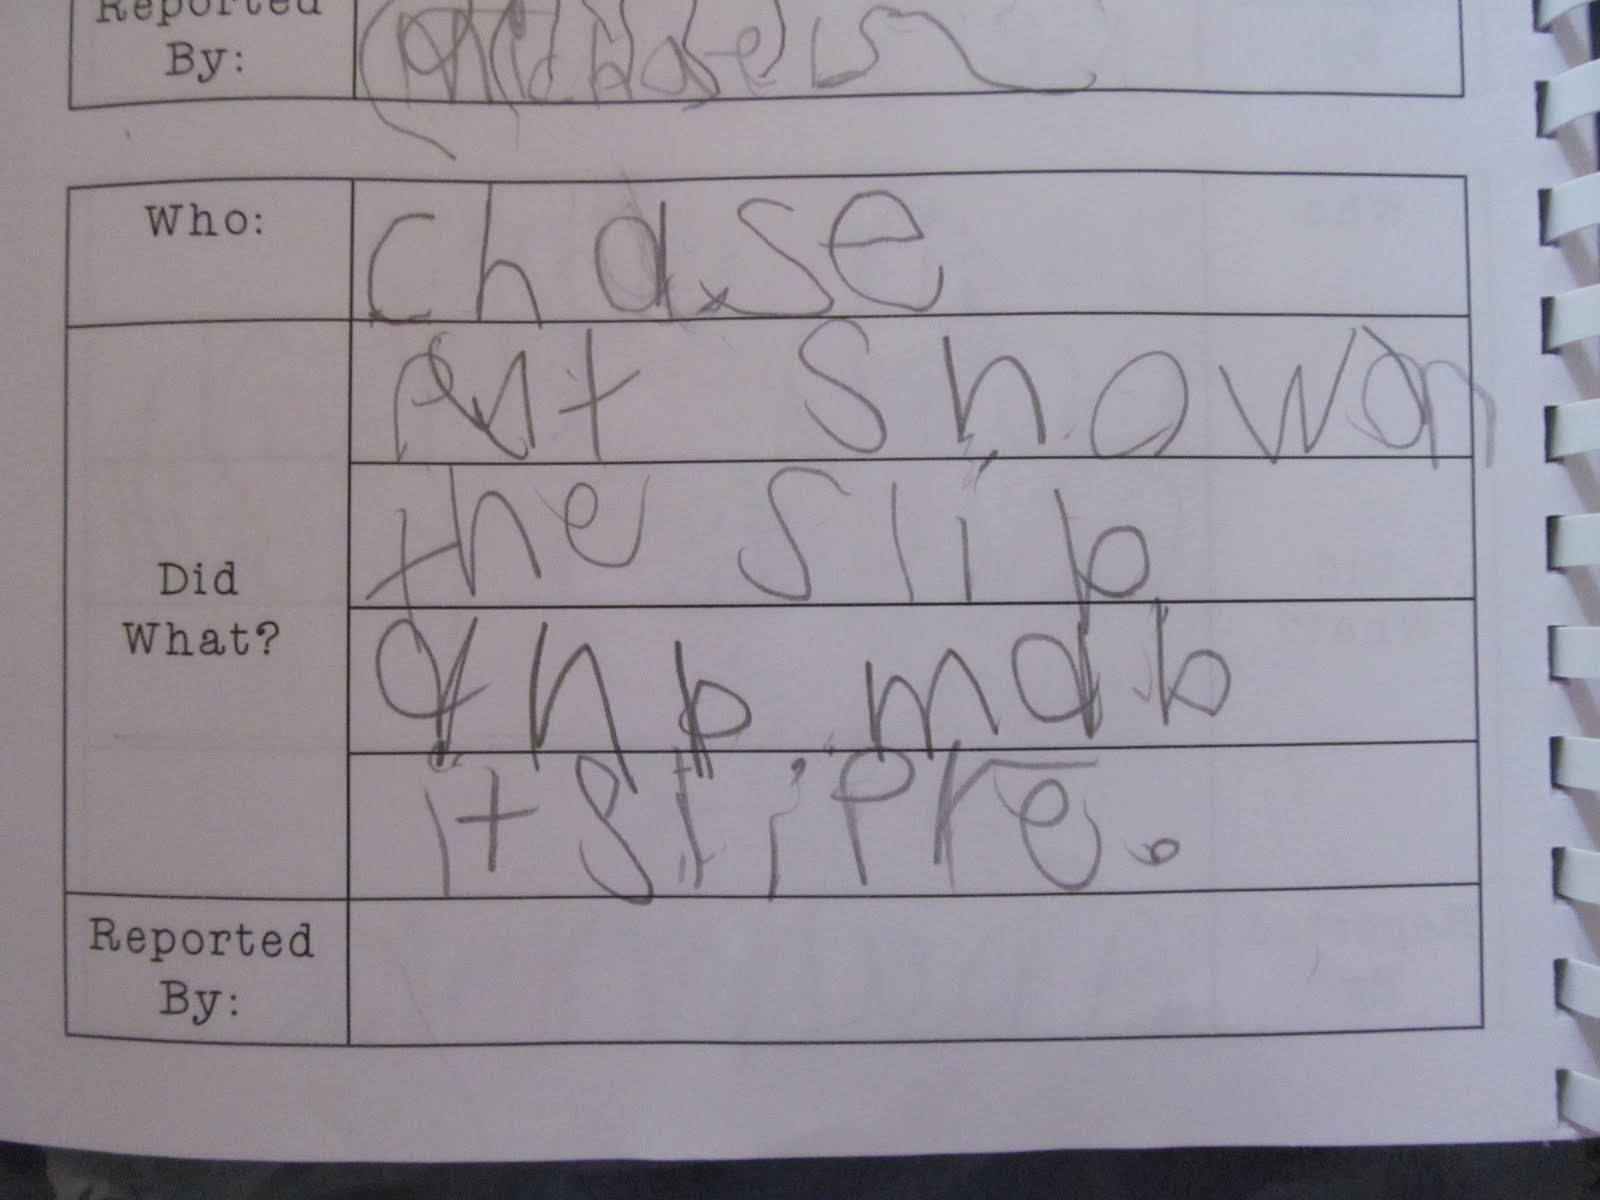 Reported
By:
Who:
chase
Did
What?
Put snow on
the slip
anb mab
it sliPre.
Reported
By: